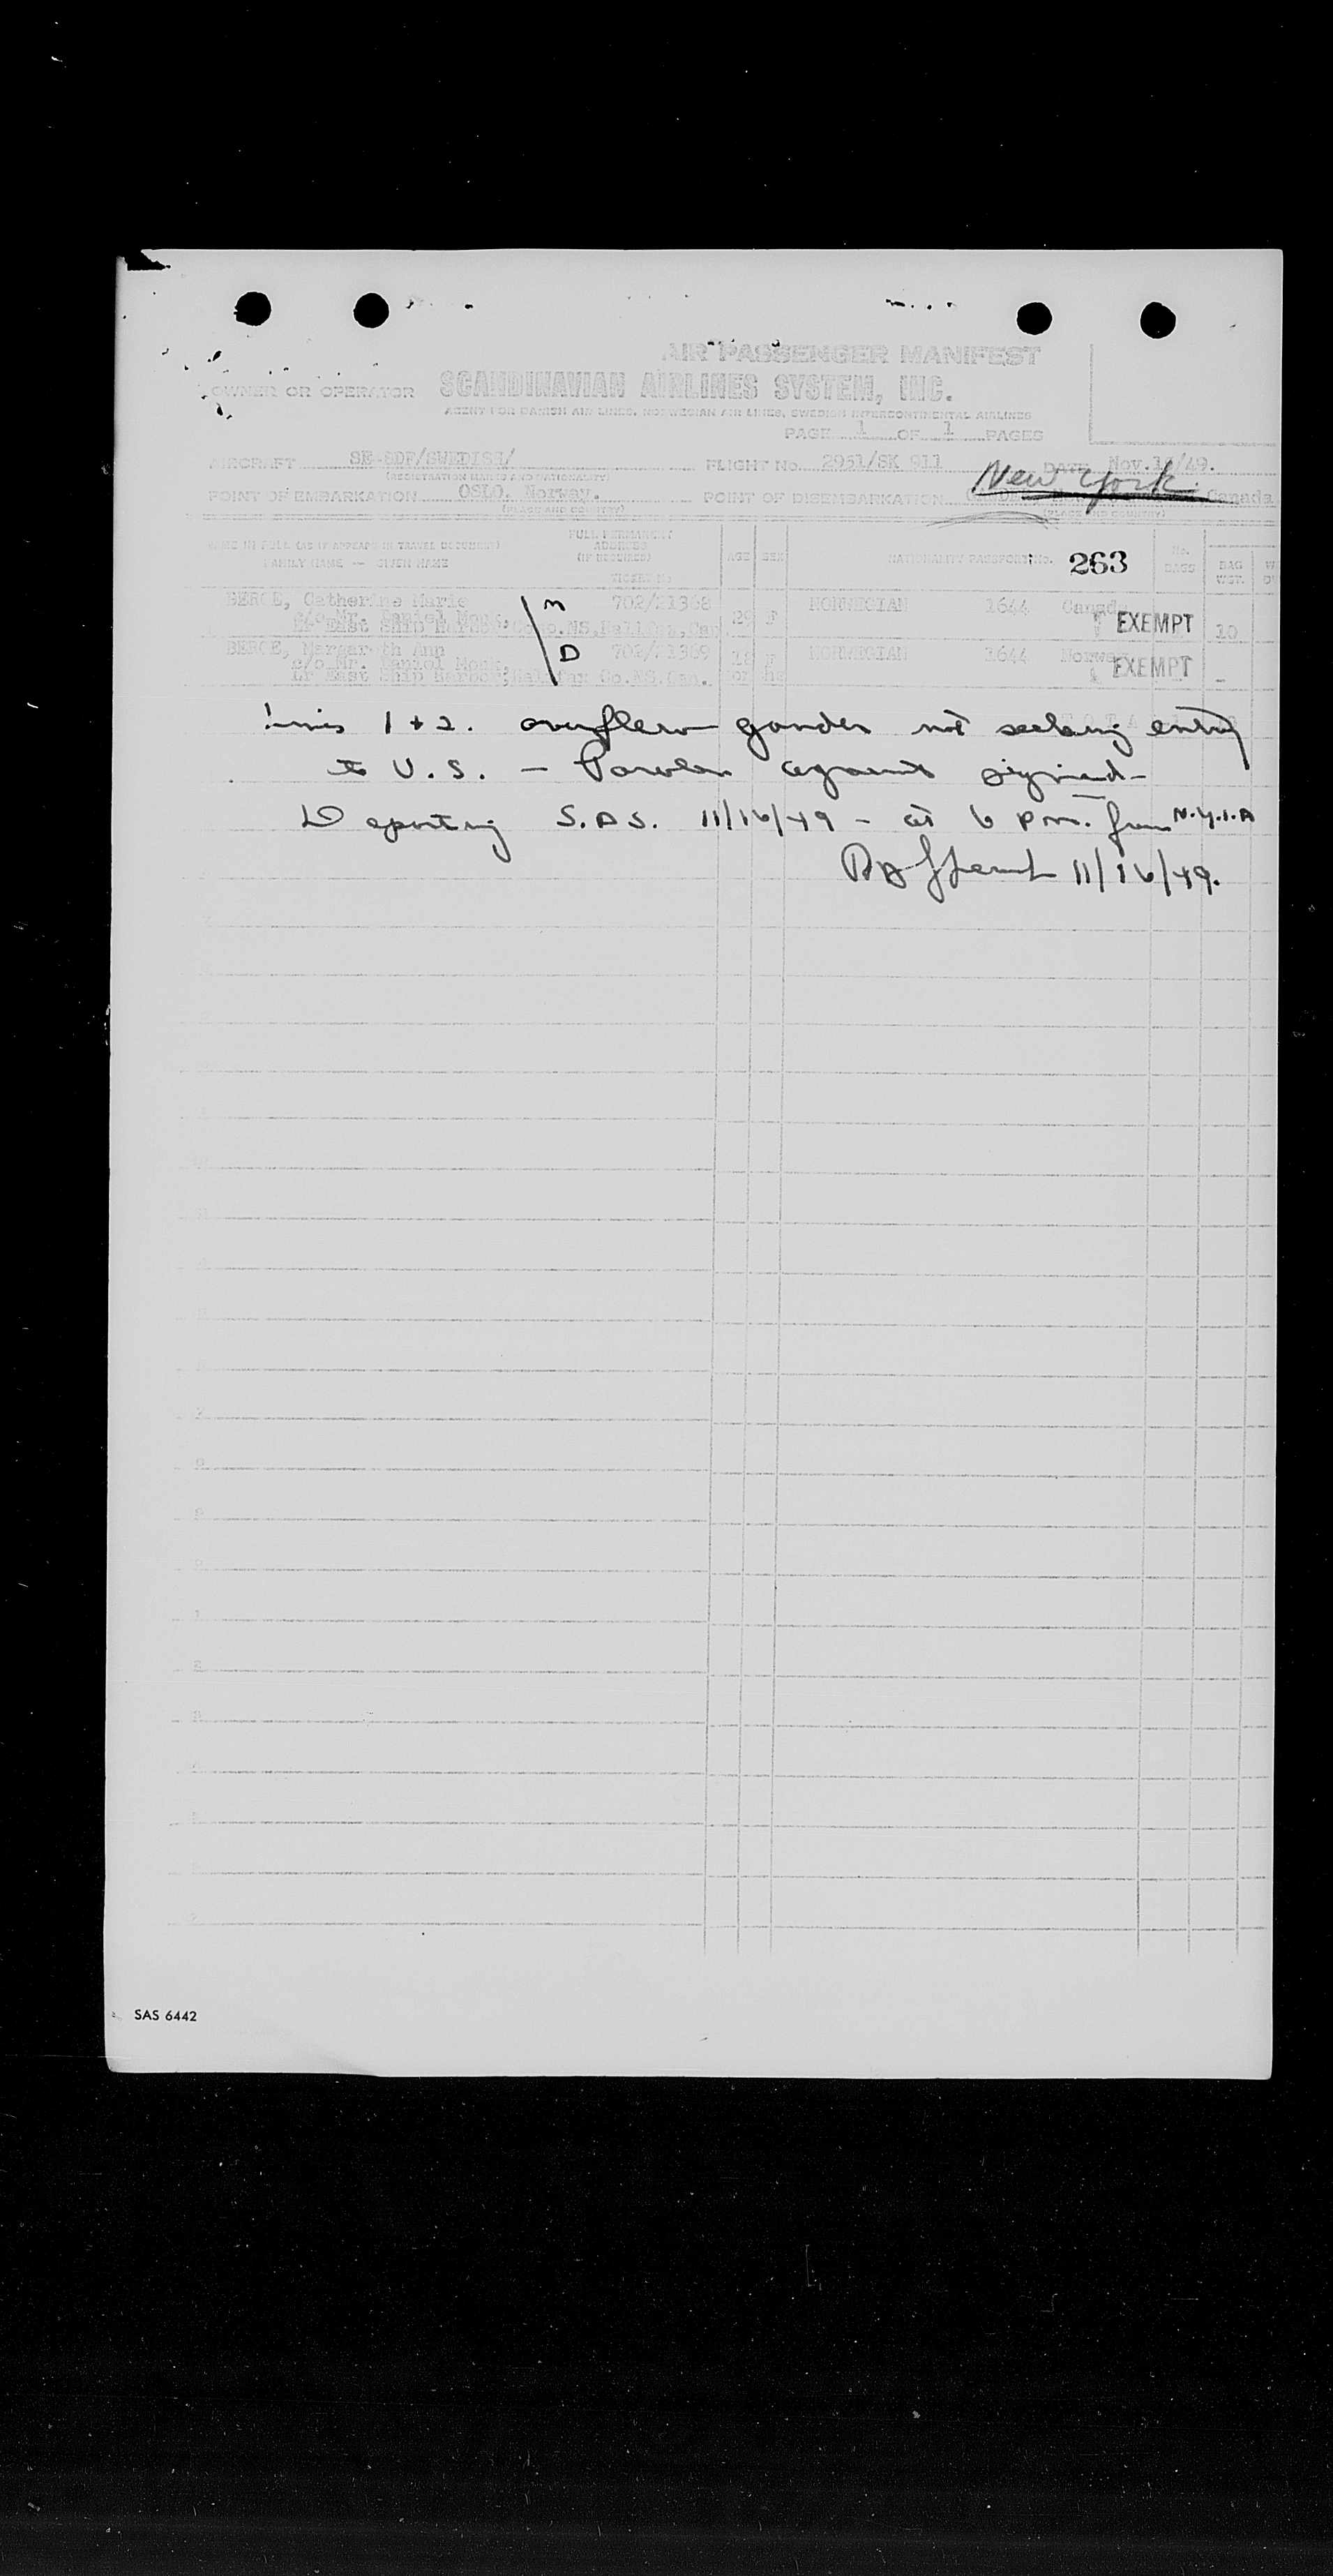 AIR PASSENGER MANIFEST
OWNER OR OPERATOR SCANDINAVIAN AIRLINES SYSTEM, INC.
AGENT FOR DANISH AIR LINES, NORWEGIAN AIR LINES, SWEDISH INTERCONTINENTAL AIRLINES
PAGE 1 OF 1 PAGES
AIRCRAFT /SWEDISH/ FLIGHT No. 2951/SK 911 DATE Nov.
(REGISTRATION MARKS AND NATIONALITY)
New York
POINT OF EMBARKATION OSLO, Norway. POINT OF DISEMBARKATION Canada
(PLACE AND COUNTRY) (PLACE AND COUNTRY)
NAME IN FULL (AS IT APPEARS IN TRAVEL DOCUMENT)
FAMILY NAME — GIVEN NAME
FULL PERMANENT ADDRESS (IF REQUIRED)
TICKET No.
AGE SEX NATIONALITY PASSPORT No. 263 No. BAGS BAG WGT.
Catherine Marie M 702/21368 29 F NORWEGIAN 1644 Canada
c/o Mr. Daniel EXEMPT 10
East Ship Harbor
Margareth Ann D 702/21369 F NORWEGIAN 1644 Norway
c/o Mr. Daniel EXEMPT -
East Ship Harbor, Halifax Co.NS.Can.
Lines 1 + 2. overflew gander not seeking entry
to U.S. – Parolee agreement signed –
Departing S.A.S. 11/16/49 – at 6 p.m. from N.Y.I.A
11/16/49.
SAS 6442